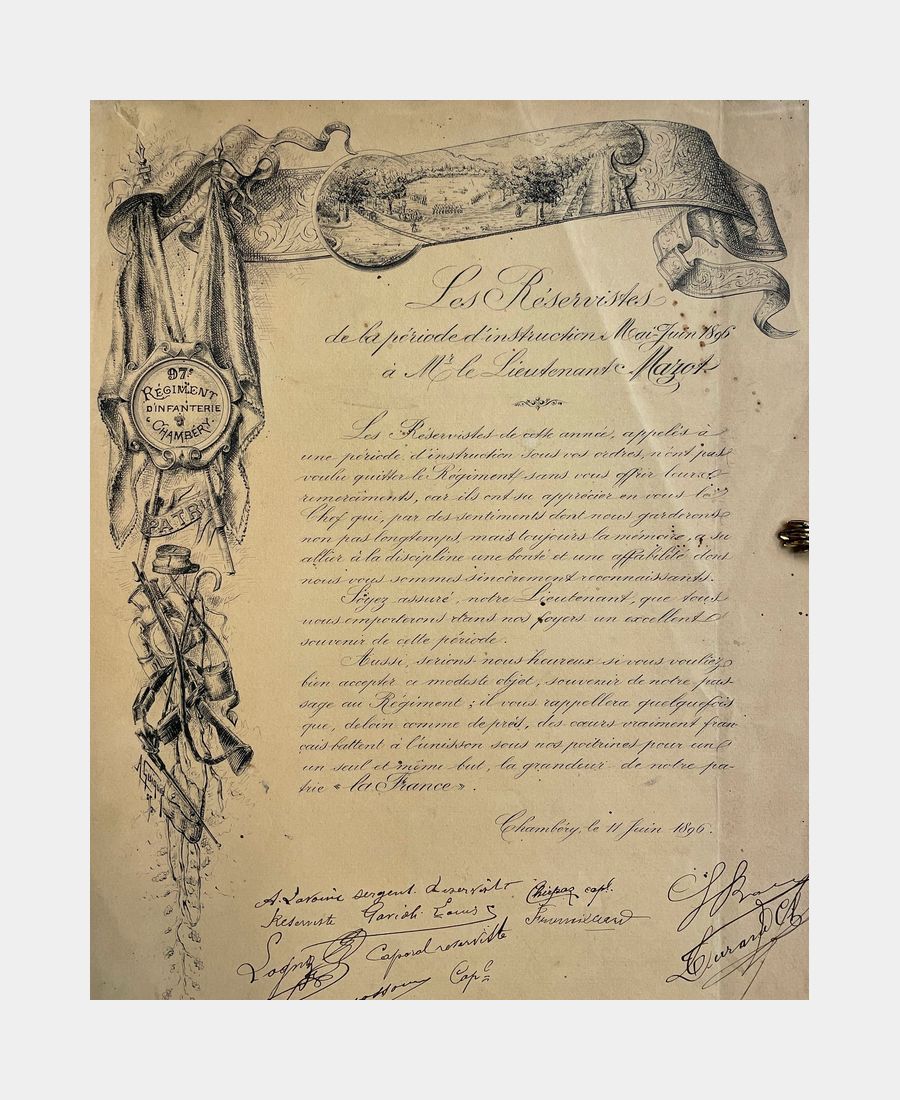 Les Réservistes
de la période d'instruction Mai-Juin 1896
à Mr le Lieutenant Mazot
97e
RÉGIMENT
D'INFANTERIE
CHAMBÉRY
PATRI
Les Réservistes de cette année, appelés à
une période d'instruction sous vos ordres, n'ont pas
voulu quitter le Régiment sans vous offrir leurs
remerciments, car ils ont su apprécier en vous le
Chef qui, par des sentiments dont nous garderons
non pas longtemps, mais toujours la mémoire, a su
allier à la discipline une bonté et une affabilité dont
nous vous sommes sincèrement reconnaissants.
Soyez assuré, notre Lieutenant, que tous
nous emporterons dans nos foyers un excellent
souvenir de cette période.
Aussi, serions-nous heureux si vous vouliez
bien accepter ce modeste objet, souvenir de notre pas-
sage au Régiment ; il vous rappellera quelquefois
que, de loin comme de près, des cœurs vraiment fran-
cais battent à l'unisson sous nos poitrines pour un
un seul et même but, la grandeur de notre pa-
trie « la France ».
Chambéry, le 11 Juin 1896.
sergent Reserviste
Chirpaz capl.
Reserviste Louis
Caporal reserviste
Durand
Capl